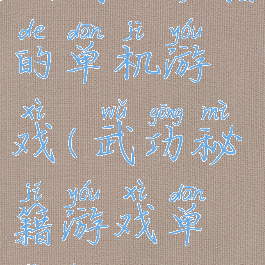 de dān jī yóu
的单机游
xì wǔ gōng mì
戏(武功秘
jí yóu xì dān
籍游戏单